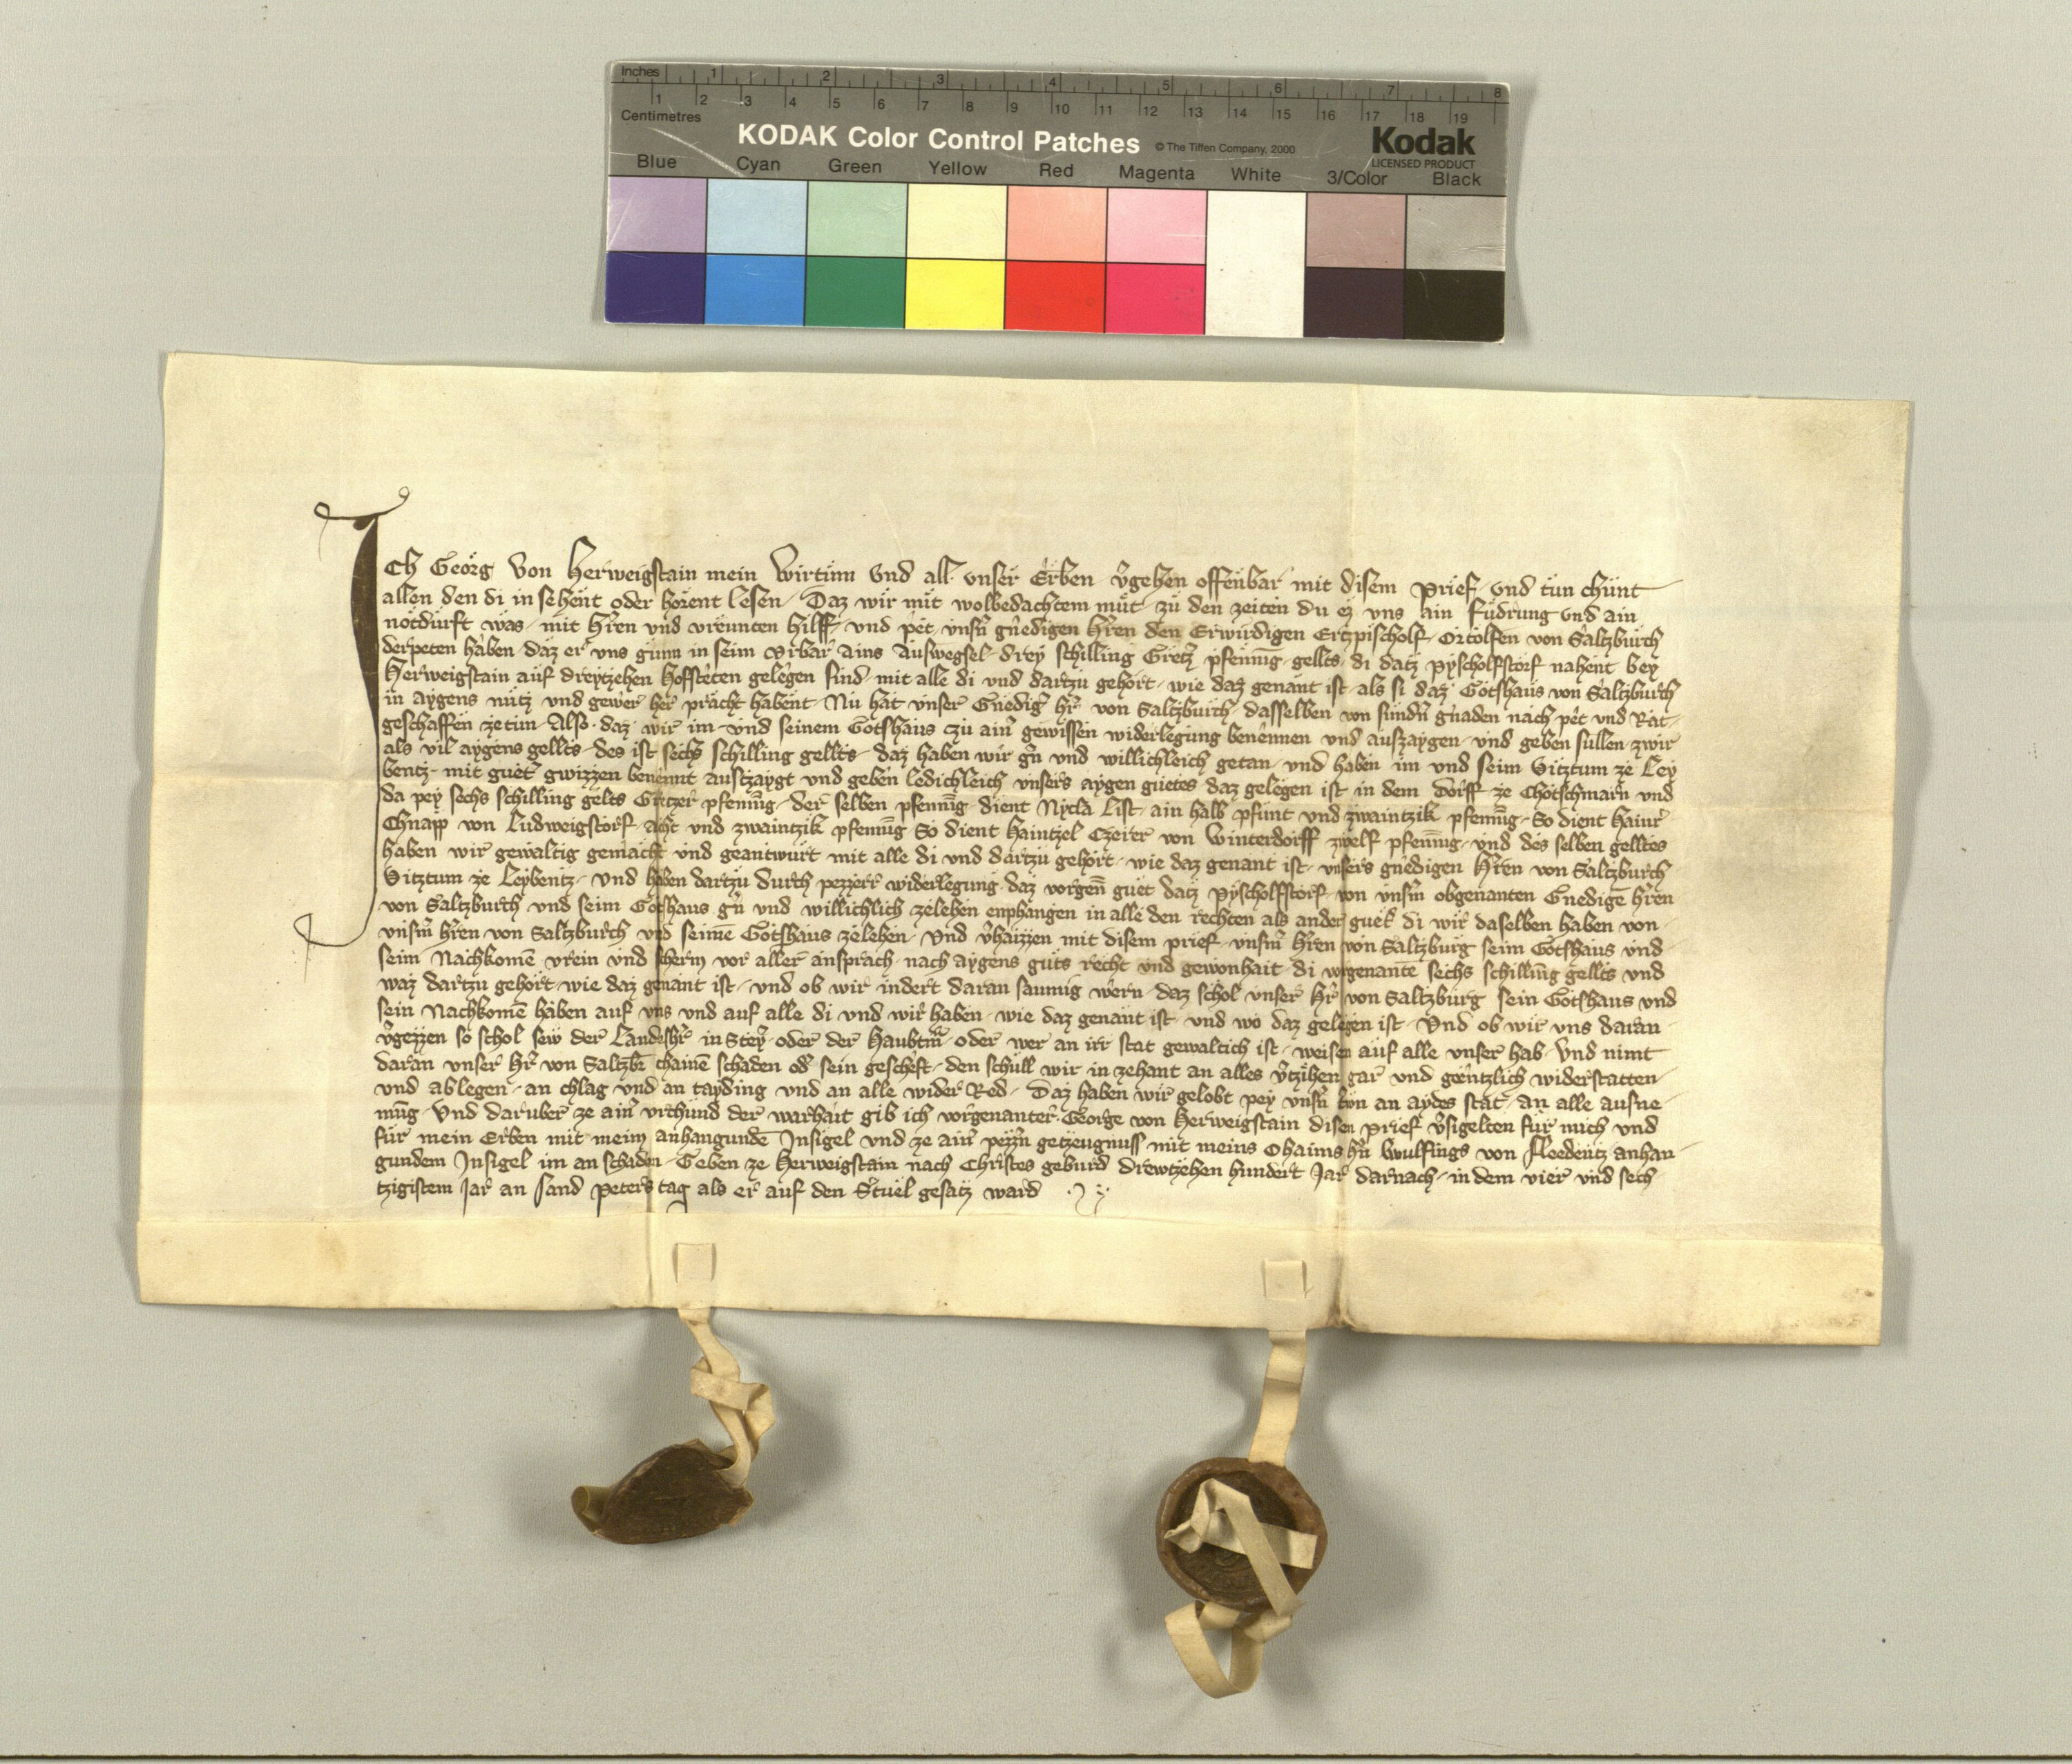 Inches 1 2 3 4 5 6 7 8
Centimetres 1 2 3 4 5 6 7 8 9 10 11 12 13 14 15 16 17 18 19
KODAK Color Control Patches © The Tiffen Company, 2000 Kodak
LICENSED PRODUCT
Blue Cyan Green Yellow Red Magenta White 3/Color Black
Ich Georg von Herweigstain mein wirtinn vnd all vnser Erben v̓gehen offenbar mit disem prief vnd tun chunt
allen den di in sehent oder horent lesen Daz wir mit wolbedachtem mut zu den zeiten du ez vns ain fudrung vnd ain
notdurft was mit hr̓en vnd vreunten hilff vnd pet vnsn̓ gnedigen hr̓en den Erwirdigen Ertzpischolf Ortolfen von Saltzburch
derpeten haben daz er vns gunn in seim Vrbar ains auswegsel drey schilling Gretz pfennīg gellts di datz pyscholfstorf nahent bey
Herweigstain auf dreytzehen hoffsteten gelegen sind mit alle di vnd dartzu gehort wie daz genant ist als si daz Gotshaus von Saltzburch
in aygens nutz vnd gewer her pracht habent Nu hat vnser Gnedig̓ hr̓ von Saltzburch dasselben von sundn̓ gnaden nach pet vnd Rat
geschaffen zetun Also daz wir im vnd seinem Gotshaus czu ain̓ gewissen widerlegung benennen vnd auszaygen vnd geben sullen zwir
als vil aygens gellts des ist sechs schilling gellts daz haben wir gn̓ vnd willichleich getan vnd haben im vnd seim Vitztum ze Ley
bentz mit guet̓ gwizzen benennt austzaygt vnd geben ledichleich vnsers aygen guetes daz gelegen ist in dem dorff ze Chotschmarn vnd
da pey sechs schilling gelts Gretzer pfennīg der selben pfennīg dient Nycla List ain halb pfunt vnd zwaintzik pfennīg So dient Hainr̓
Chnapp von Ludweigstorf acht vnd zwaintzik pfennīg So dient Haintzel Czeirer von Winterdorff zwelf pfennīg vnd des selben gelltes
haben wir gewaltig gemacht vnd geantwurt mit alle di vnd dartzu gehort wie daz genant ist vnsers gnedigen hr̓en von Saltzburch
Vitztum ze Leybentz Vnd haben dartzu durch pezzerr̓ widerlegung daz vorgen̄ guet datz pyscholffstorf von vnsm̓ obgenanten Gnedigē hr̓en
von Saltzburch vnd seim Gotshaus gn̓ vnd willichlich zelehen enphangen in alle den rechten als ander guet di wir daselben haben von
vnsm̓ hr̓en von Saltzburch vnd seimē Gotshaus zelehen Vnd v̓haizzen mit disem prief vnsm̓ hr̓en von Saltzburg seim Gotshaus vnd
seim Nachkomē vrein vnd scherm vor aller ansprach nach aygens guts recht vnd gewonhait di vorgenantē sechs schillīng gellts vnd
waz dartzu gehort wie daz genant ist vnd ob wir indert daran saumig wern daz schol vnser hr̓ von Saltzburg sein Gotshaus vnd
sein Nachkomē haben auf vns vnd auf alle di vnd wir haben wie daz genant ist vnd wo daz gelegen ist Vnd ob wir vns daran
v̓gezzen so schol sew der Landeshr̓ in Steyr̓ oder der Haubtm̄ oder wer an irr stat gewaltich ist weisen auf alle vnser hab Vnd nimt
daran vnser hr̓ von Saltzb̄ chainē schaden od̓ sein gescheft den schull wir in zehant an alles v̓tzihen gar vnd gentzlich widerstatten
vnd ablegen an chlag vnd an tayding vnd an alle wider Red Daz haben wir gelobt pey vnsn̓ trwn an aydes stat an alle ausne
mūg Vnd daruber ze ain̓ vrchund der warhait gib ich vorgenanter George von Herweigstain disen prief v̓sigelten fur mich vnd
fur mein Erben mit meim anhangundē Insigel vnd ze ain̓ pezzn̓ getzeugnuss mit meins Ohaims hn̓ Wulfings von fleedentz anhan
gundem Insigel im an schaden Geben ze Herweigstain nach Christes geburd drewtzehen hundert Jar darnach in dem vier vnd sech
tzigistem Jar an sand peters tag als er auf den Stuel gesatz ward